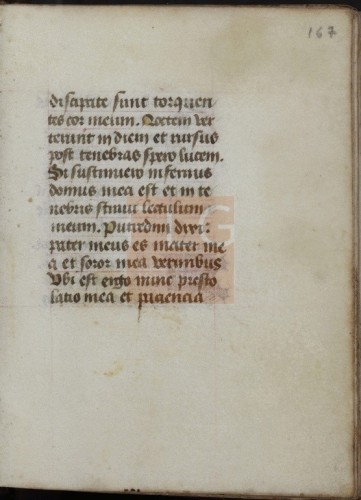 167
discipate sunt torquen
tes cor meum. Noctem ver
terunt in diem et rursus
post tenebras spero lucem.
Si sustinuero infernus
domus mea est et in te
nebris stravi lectulum
meum. Putredini dixi:
pater meus es mater me
a et soror mea vermibus
Ubi est ergo nunc presto
latio mea et paciencia